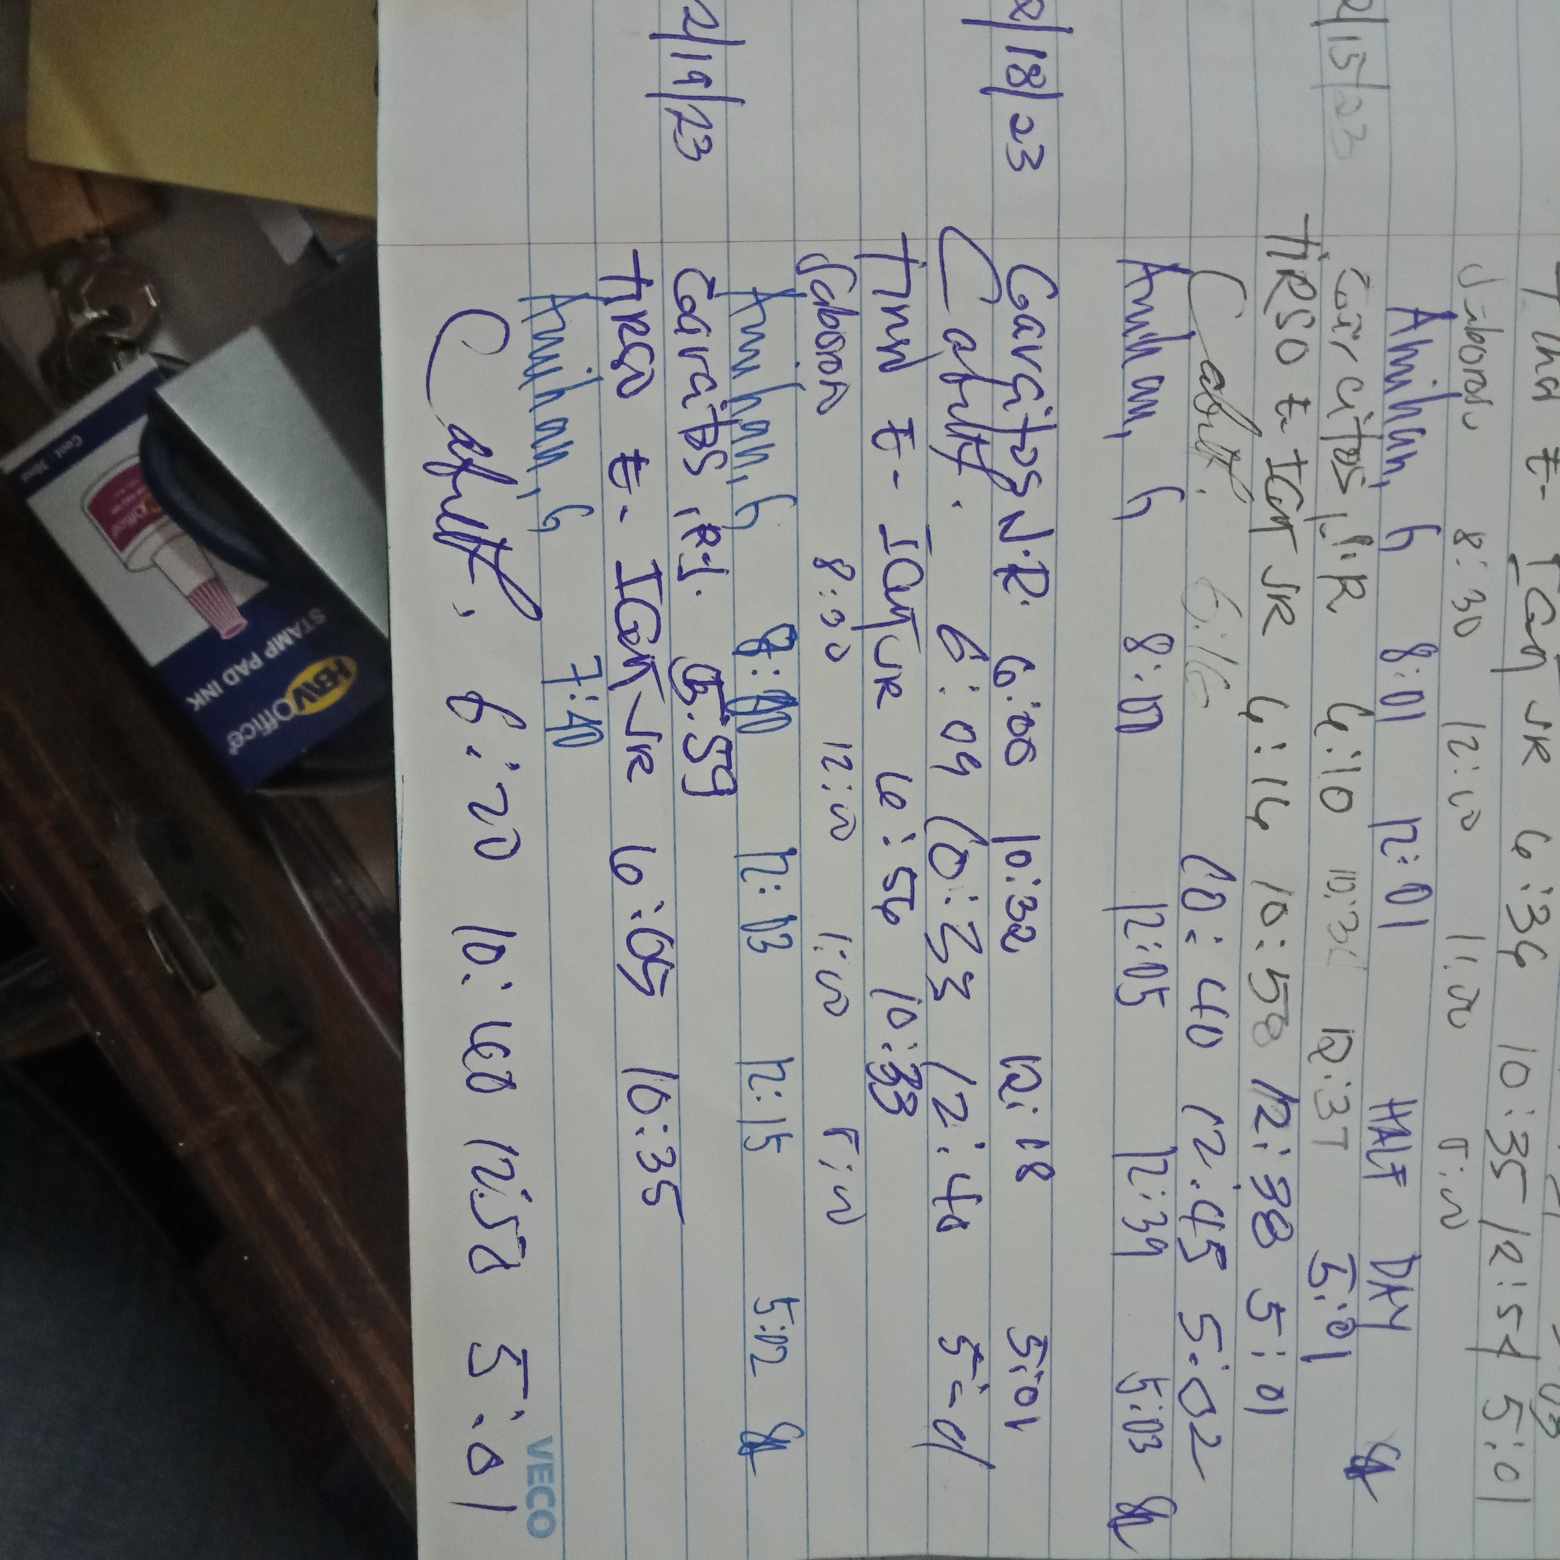 Tirso E. Igot JR 6:34 10:35 12:54 5:01
Saboron 8:30 12:00 11:00 5:00
Amihan, G 8:01 12:01 HALF DAY
2/15/23 Garcitos, J.R 6:10 10:32 12:37 5:01
TIRSO E IGOT JR 6:14 10:58 12:38 5:01
Cabult. 10:40 12:45 5:02
Amihan, G 8:00 12:05 12:39 5:03
2/18/23 Garcitos J.R. 6:00 10:32 12:18 5:01
Cabult. 6:09 10:33 12:40 5:01
Tirso E- IGOT JR 6:56 10:33
Saboron 8:30 12:00 1:00 5:00
Amihan, G 8:00 12:03 12:15 5:02
2/19/23 Garcitos, R.J. 5:59
TIRSO E. IGOT JR 6:05 10:35
Amihan, G 7:40
Cabult. 6:20 10:40 12:50 5:01
VECO
HBW Office
STAMP PAD INK
Cont.: 30ml